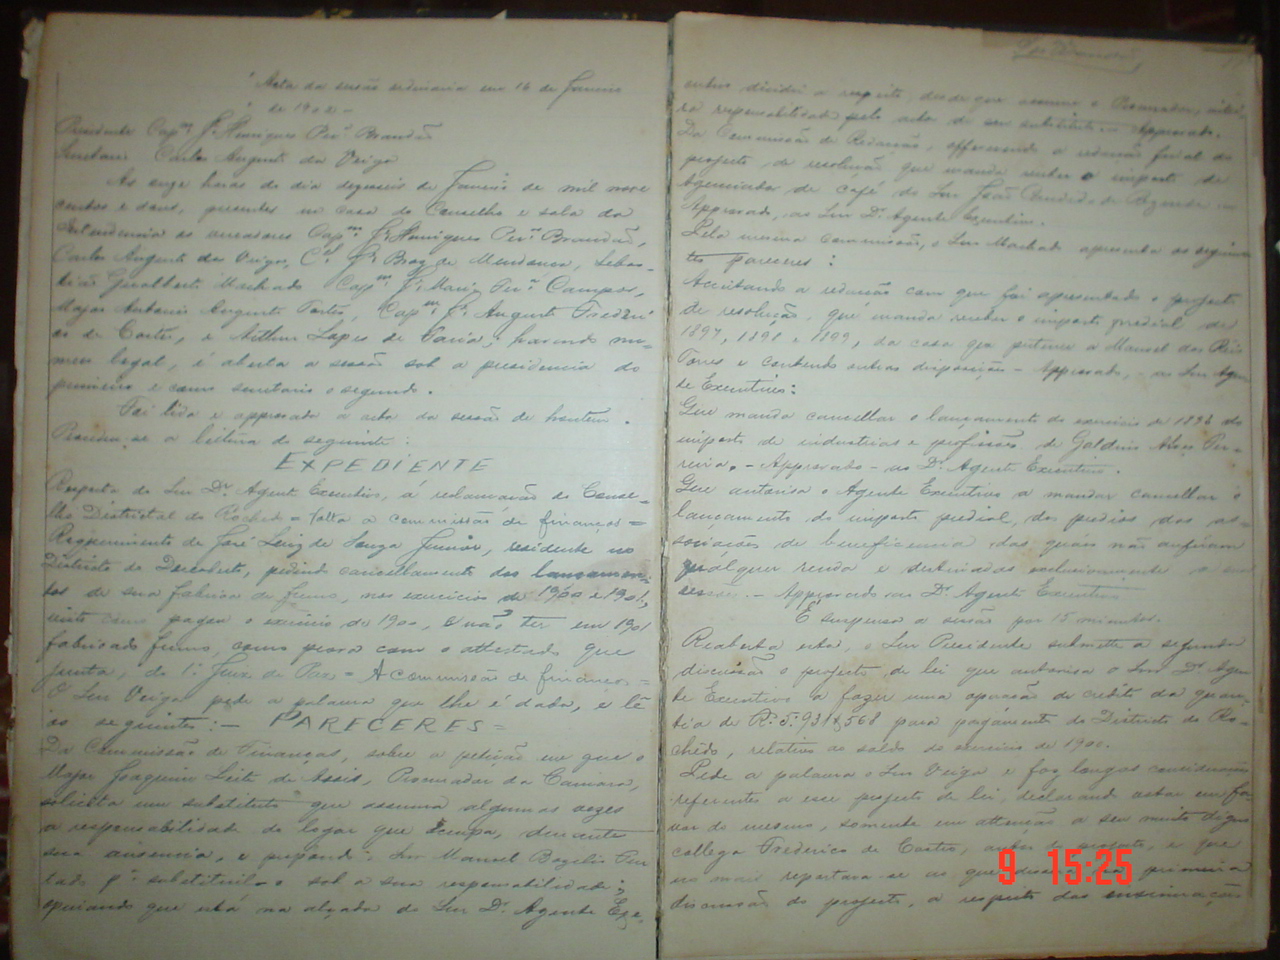 Acta da sessão ordinaria em 16 de Janeiro
de 1902 -
Presidente Cap.m J.e Henriques Per.a Brandão
Secretario Carlos Augusto da Veiga
As onze horas do dia deseseis de Janeiro de mil nove
centos e dous, presentes na casa do Conselho e sala da
Intendencia os vereadores Cap.m J.e Henriques Per.a Brandão,
Carlos Augusto da Veiga, C.el J.e Braz de Mendonça, Sebas-
tião Machado Cap.m J.e Maria Per.a Campos,
Major Antonio Augusto Cap.m J.e Augusto Frederi
co de Castro, e Arthur Lopes de Faria, havendo nu-
mero legal, é aberta a sessão sob a presidencia do
primeiro e como secretario o segundo.
Foi lida e approvada a acta da sessão de hontem.
a leitura do seguinte:
EXPEDIENTE
Resposta do Snr Dr. Agente Executivo, á reclamação do Conse-
lho Districtal do Rochedo = Volta a commissão de finanças =
Requerimento de José Luiz de Souza Junior, residente no
Districto do Descoberto, pedindo cancellamento dos lançamen-
tos de sua fabrica de fumo, nos exercicios de 1900 e 1901,
visto como pagou o exercicio de 1900, e não ter em 1901
fabricado fumo, como prova com o attestado que
junta, do 1.o Juiz de Paz = A commissão de finanças =
O Snr Veiga pede a palavra que lhe é dada, e lê
os seguintes: - PARECERES =
Da Commissão de Finanças, sobre a petição em que o
Major Joaquim Leite de Assis, Procurador da Camara,
solicita um substituto que assuma algumas vezes
a responsabilidade do logar que occupa, durante
sua ausencia, e Snr Manoel
p.a substituil-o sob a sua responsabilidade;
opinando que está na alçada do Snr Dr. Agente Exe-
cutivo decidir a respeito, desde que assuma o Procurador, intei-
ra responsabilidade pelo acto de seu substituto. - Approvado.
Da Commissão de Redacção, offerecendo a redacção final do
projecto de resolução que manda o imposto de
Agenciador de café do Snr João Candido de
Approvado, ao Snr Dr. Agente Executivo.
Pela mesma Commissão, o Snr Machado apresenta os seguin-
tes pareceres:
Acceitando a redacção com que foi apresentado o projecto
de resolução, que manda receber o imposto predial de
1897, 1898 e 1899, da casa que pertence a Manoel dos Reis
Torres e contendo outras disposições - Approvado, - ao Snr Agen
te Executivo:
Que manda cancellar o lançamento do exercicio de 1896 do
imposto de industrias e profissões de Galdino Alves Per-
reira. - Approvado - ao Dr. Agente Executivo.
Que autorisa o Agente Executivo a mandar cancellar o
lançamento do imposto predial, dos predios das as-
sociações de beneficencia das quaes não aufiram
qualquer renda e destinados exclusivamente
- Approvado ao Dr. Agente Executivo
É suspensa a sessão por 15 minutos.
Reaberta esta, o Snr Presidente submette a segunda
discussão o projecto de lei que autorisa o Snr Dr. Agen
te Executivo a fazer uma operação de credito da quan-
tia de Rs. 5:931$568 para pagamento do Districto do Ro-
chêdo, relativo ao saldo do exercicio de 1900.
Pede a palavra o Snr Veiga e faz longas considerações
referentes a esse projecto de lei, declarando votar em fa-
vor do mesmo, somente em attenção a seu muito digno
collega Frederico de Castro, autor do projecto, e que
no mais reportava-se ao que disse na primeira
discussão do projecto, a respeito das insinuações
9 15:25